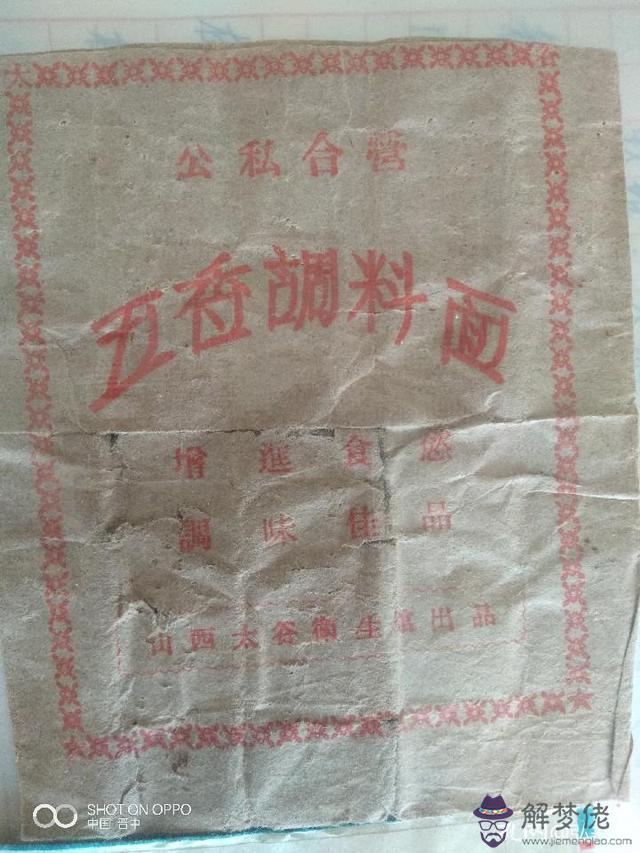 太 谷
公私合營
五香調料面
增進食慾
調味佳品
山西太谷衛生館出品
SHOT ON OPPO
中国 晋中
解梦佬
www.jiemenglao.com